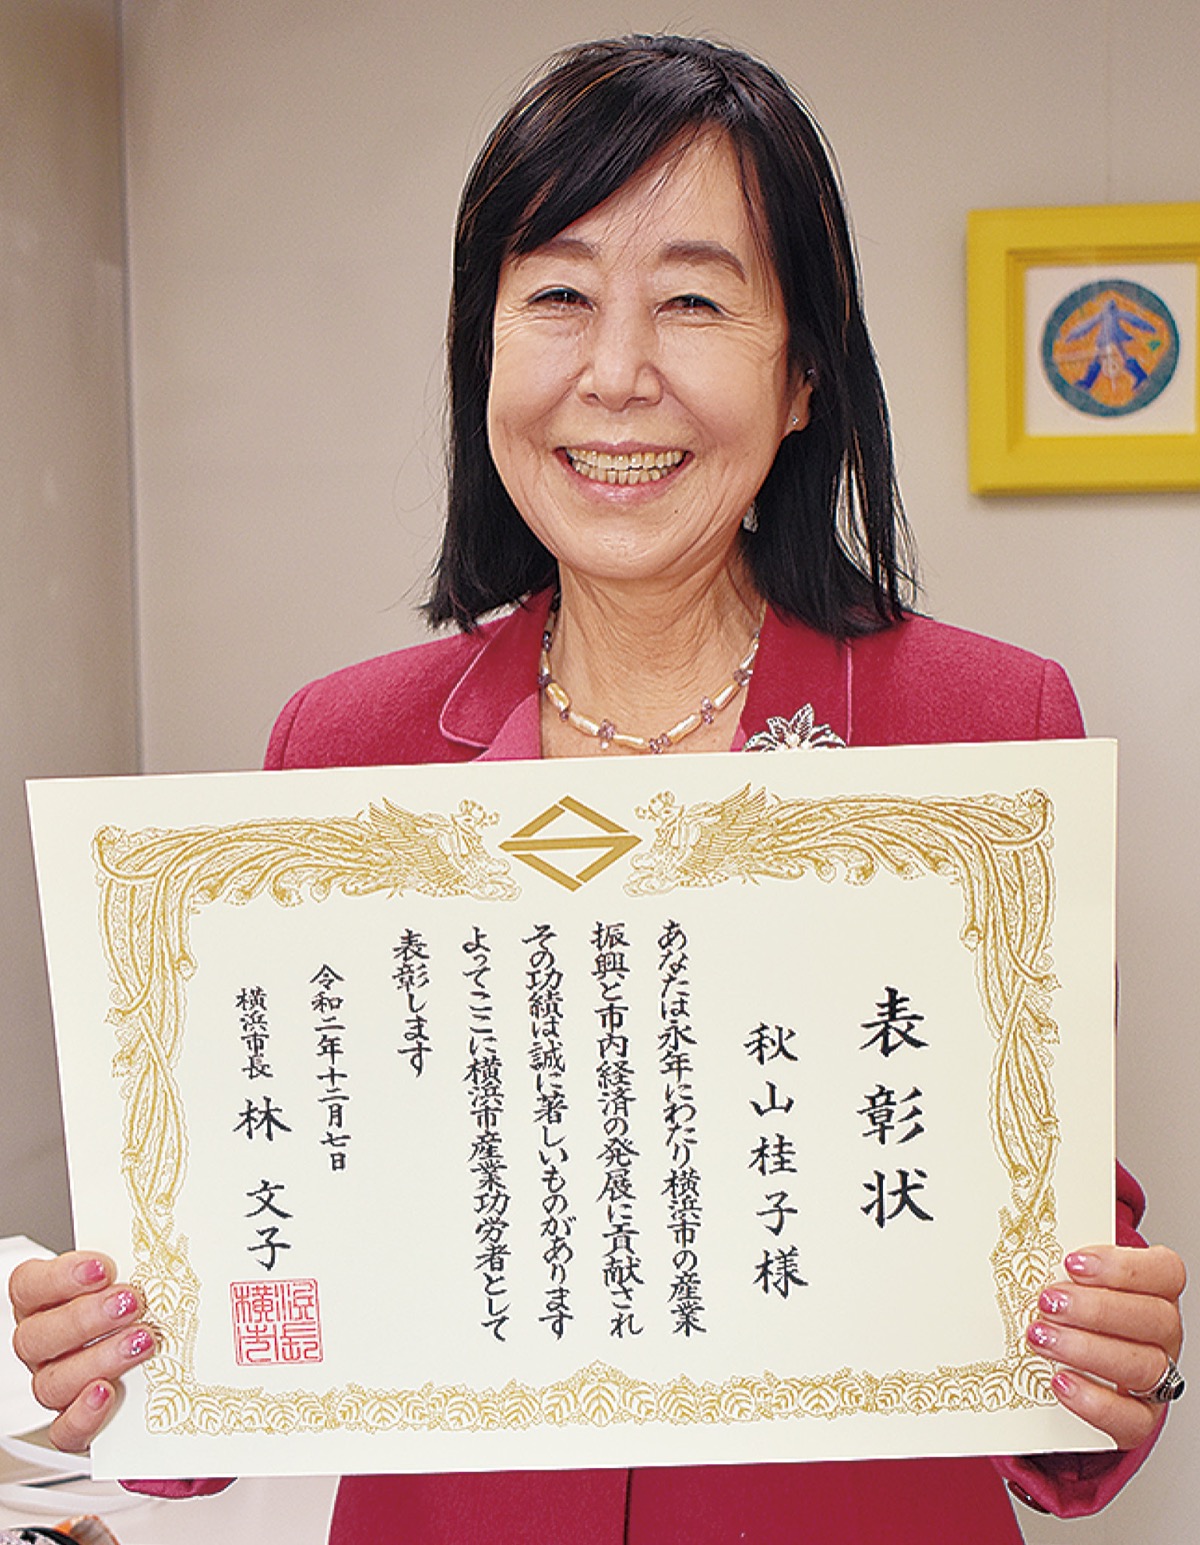 表彰状
秋山桂子様
あなたは永年にわたり横浜市の産業
振興と市内経済の発展に貢献され
その功績は誠に著しいものがあります
よってここに横浜市産業功労者として
表彰します
令和二年十二月七日
横浜市長 林 文子